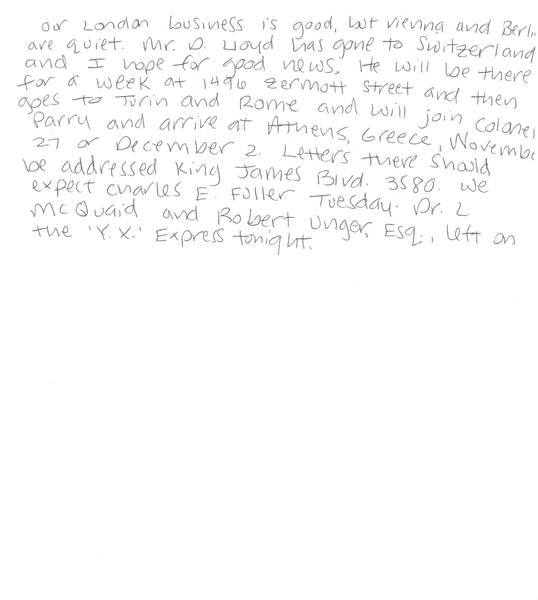 Our London business is good, but vienna and Berli
are quiet. Mr. D. Lloyd has gone to Switzerland
and I hope for good news. He will be there
for a week at 1496 Zermott Street and then
goes to Turin and Rome and will join Colonel
Parry and arrive at Athens, Greece, Novembe
27 or December 2. Letters there should
be addressed King James Blvd. 3580. We
expect Charles E. Fuller Tuesday. Dr. L
McQuaid and Robert Unger, Esq., left on
the 'Y.X.' Express tonight.